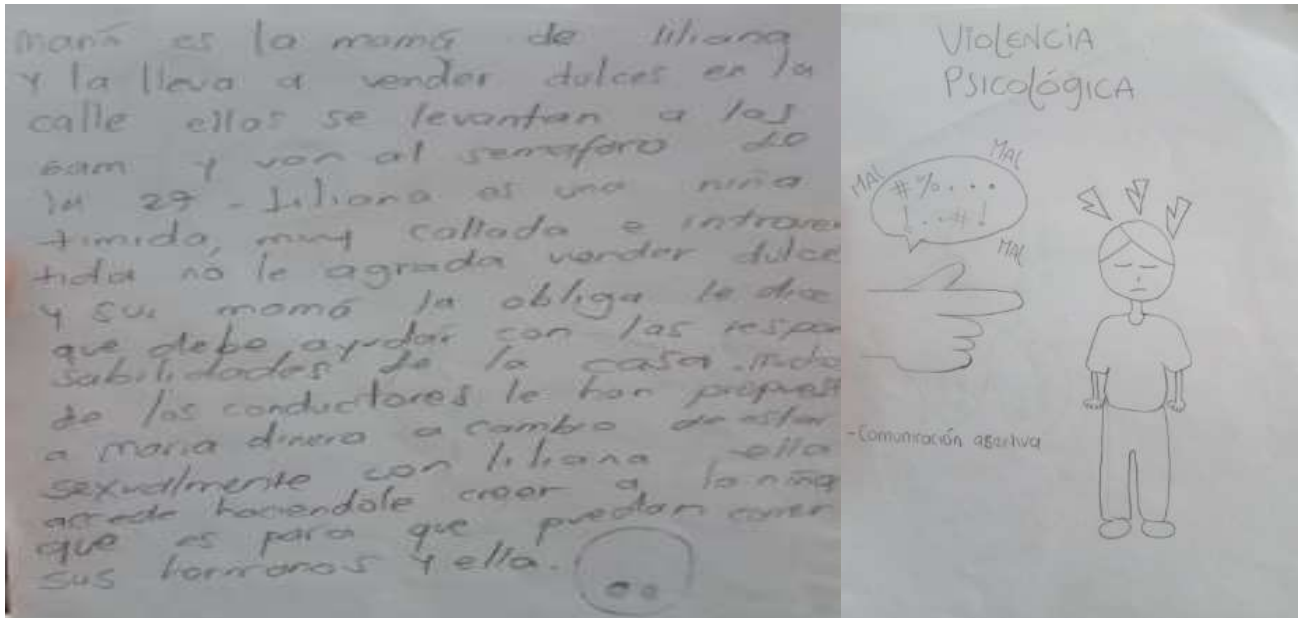 María es la mamá de liliana
y la lleva a vender dulces en la
calle ellas se levantan a las
6am y van al semaforo de
la 27 - Liliana es una niña
timida, muy callada e introver
tida no le agrada vender dulce
y su mamá la obliga le dice
que debe ayudar con las respon
sabilidades de la casa.
de los conductores le han propuest
a maria dinero a cambio de estar
sexualmente con liliana ella
accede haciendole creer a la niña
que es para que puedan comer
sus hermanos y ella.
VIOLENCIA
PSICOLÓGICA
MAL
MAL
#%...
!..#!
MAL
-Comunicación asertiva